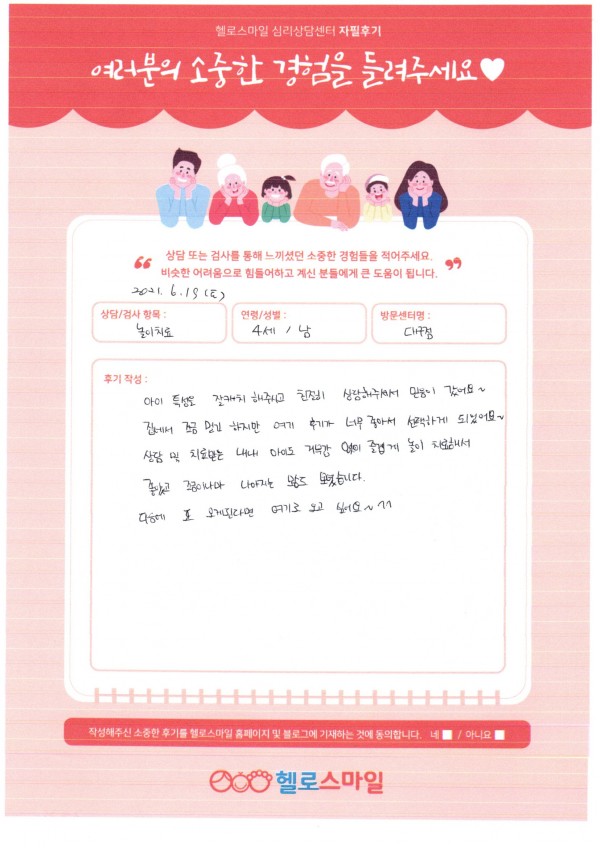 헬로스마일 심리상담센터 자필후기
여러분의 소중한 경험을 들려주세요♥
“ 상담 또는 검사를 통해 느끼셨던 소중한 경험들을 적어주세요.
비슷한 어려움으로 힘들어하고 계신 분들에게 큰 도움이 됩니다. ”
2021. 6.19 (토)
상담/검사 항목 :
놀이치료
연령/성별 :
4세 / 남
방문센터명 :
대구점
후기 작성 :
아이 특성도 잘캐치 해주시고 친절히 상담해주셔서 믿음이 갔어요~
집에서 조금 멀긴 하지만 여기 후기가 너무 좋아서 선택하게 되었어요~
상담 및 치료받는 내내 아이도 거부감 없이 즐겁게 놀이 치료해서
좋았고 조금이나마 나아지는 모습도 보였습니다.
다음에 또 오게된다면 여기로 오고 싶어요~ ^^
작성해주신 소중한 후기를 헬로스마일 홈페이지 및 블로그에 기재하는 것에 동의합니다. 네 / 아니요
헬로스마일